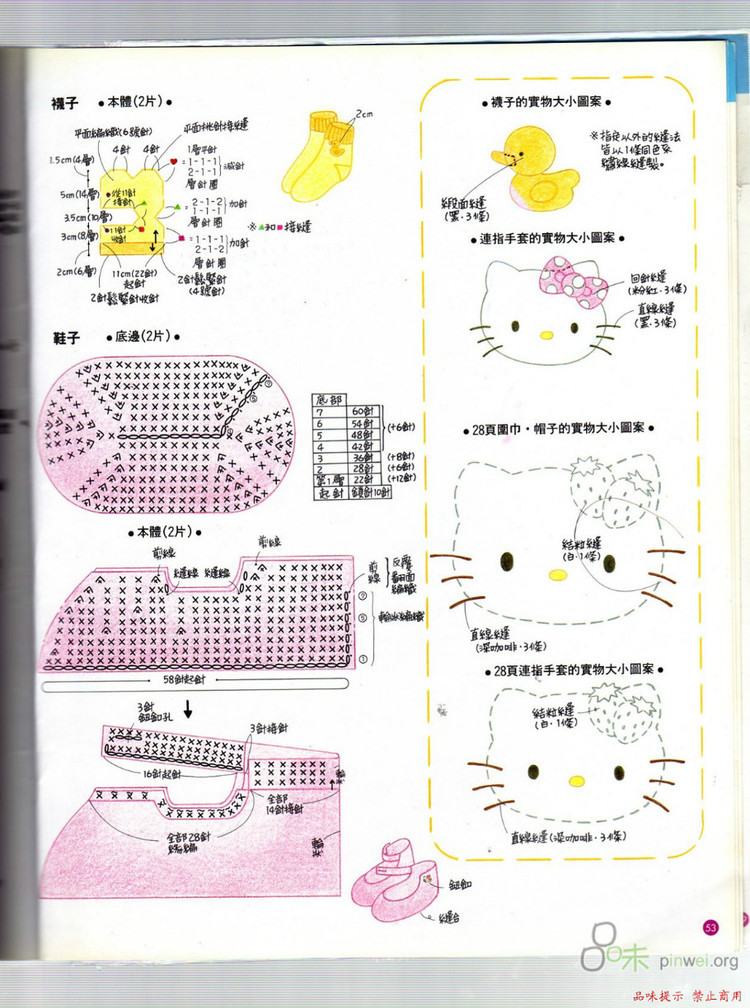 襪子 •本體(2片)•
平面編織(6號針)
平面桃針接縫
4針 4針
1.5cm(4層)
5cm(14層)
3.5cm(10層)
3cm(8層)
2cm(6層)
1層平針
=1-1-1
2-1-1
減針
層針圈
=2-1-2
1-1-1
加針
層針圈
=1-1-1
2-1-2
加針
層針圈
11cm(22針)
起針
2針鬆緊針收針
2針鬆緊針
(4號針)
2cm
鞋子 •底邊(2片)•
⑦
⑥
底部
7 60針
6 54針 (+6針)
5 48針
4 42針
3 36針 (+8針)
2 28針 (+6針)
第1層 22針 (+12針)
起針 鎖針10針
•本體(2片)•
剪線
剪線
接線 接線
剪線
反覆
翻面
編織
輪狀編織
⑦
⑤
①
58針起針
3針
鈕釦孔
3針接針
16針起針
全部
14針接針
全部28針
鈕釦
縫合
•襪子的實物大小圖案•
※指定以外的縫法
皆以1條同色系
繡線縫製。
緞面縫
(黑·3條)
•連指手套的實物大小圖案•
回針縫
(粉紅·3條)
直線縫
(黑·3條)
•28頁圍巾·帽子的實物大小圖案•
結粒縫
(白·1條)
直線縫
(深咖啡·3條)
•28頁連指手套的實物大小圖案•
結粒縫
(白·1條)
直線縫(深咖啡·3條)
53
品味 pinwei.org
品味提示 禁止商用